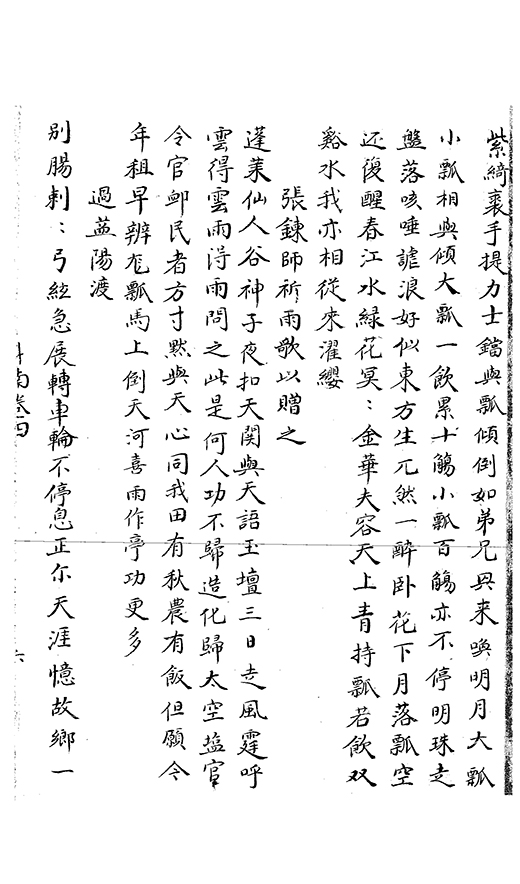 紫綺裘手提力士鐺與瓢傾倒如弟兄再来喚明月大瓢
小瓢相與傾大瓢一飲累十觴小瓢百觴亦不停明珠走
盤落咳唾謔浪好似東方生兀然一醉卧花下月落瓢空
还復醒春江水緑花冥〻金華夫容天上青持瓢若飲双
谿水我亦相從来濯纓
張鍊師祈雨歌以贈之
蓬萊仙人谷神子夜扣天関與天語玉壇三日走風霆呼
雲得雲雨浔雨問之此是何人功不歸造化歸太空塩官
令官邺民者方寸黙與天心同我田有秋農有飯但願今
年租早辨尨瓢馬上倒天河喜雨作亭功更多
過盐陽渡
別腸刺〻弓絃急展轉車輪不停息正尔天涯憶故鄉一
卷四
六